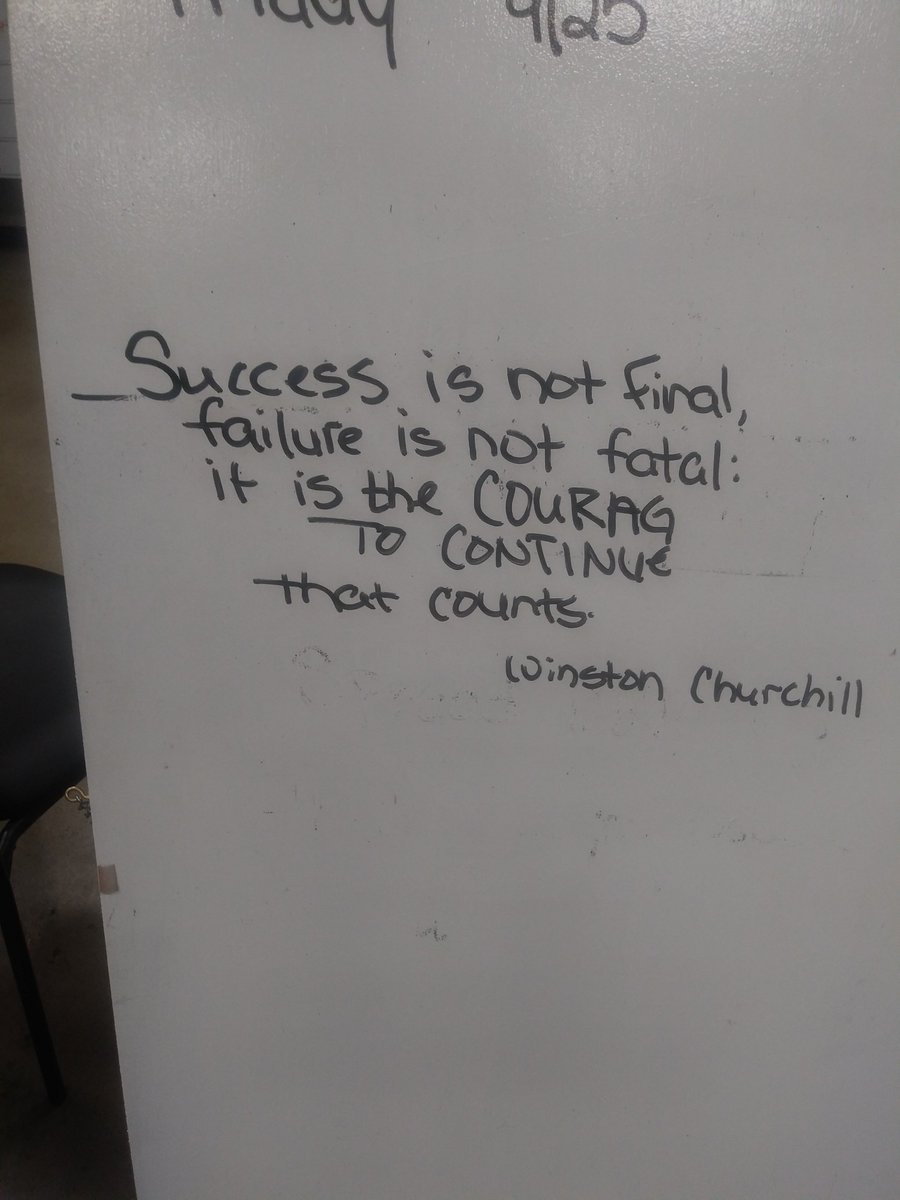 Friday 9/25
Success is not final,
failure is not fatal:
it is the COURAG
TO CONTINUE
that counts.
Winston Churchill